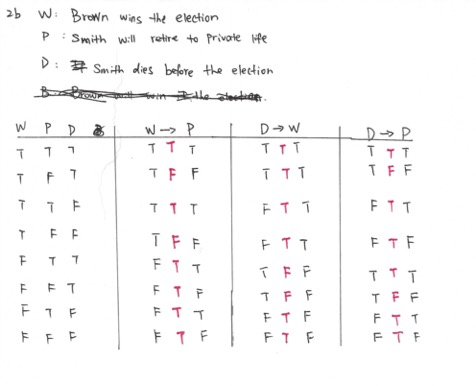 2b W: Brown wins the election
P: Smith will retire to private life
D: Smith dies before the election
W P D W → P D → W D → P
T T T T T T T T T T T T
T F T T F F T T T T F F
T T F T T T F T T F T T
T F F T F F F T T F T F
F T T F T T T F F T T T
F F T F T F T F F T F F
F T F F T T F T F F T T
F F F F T F F T F F T F